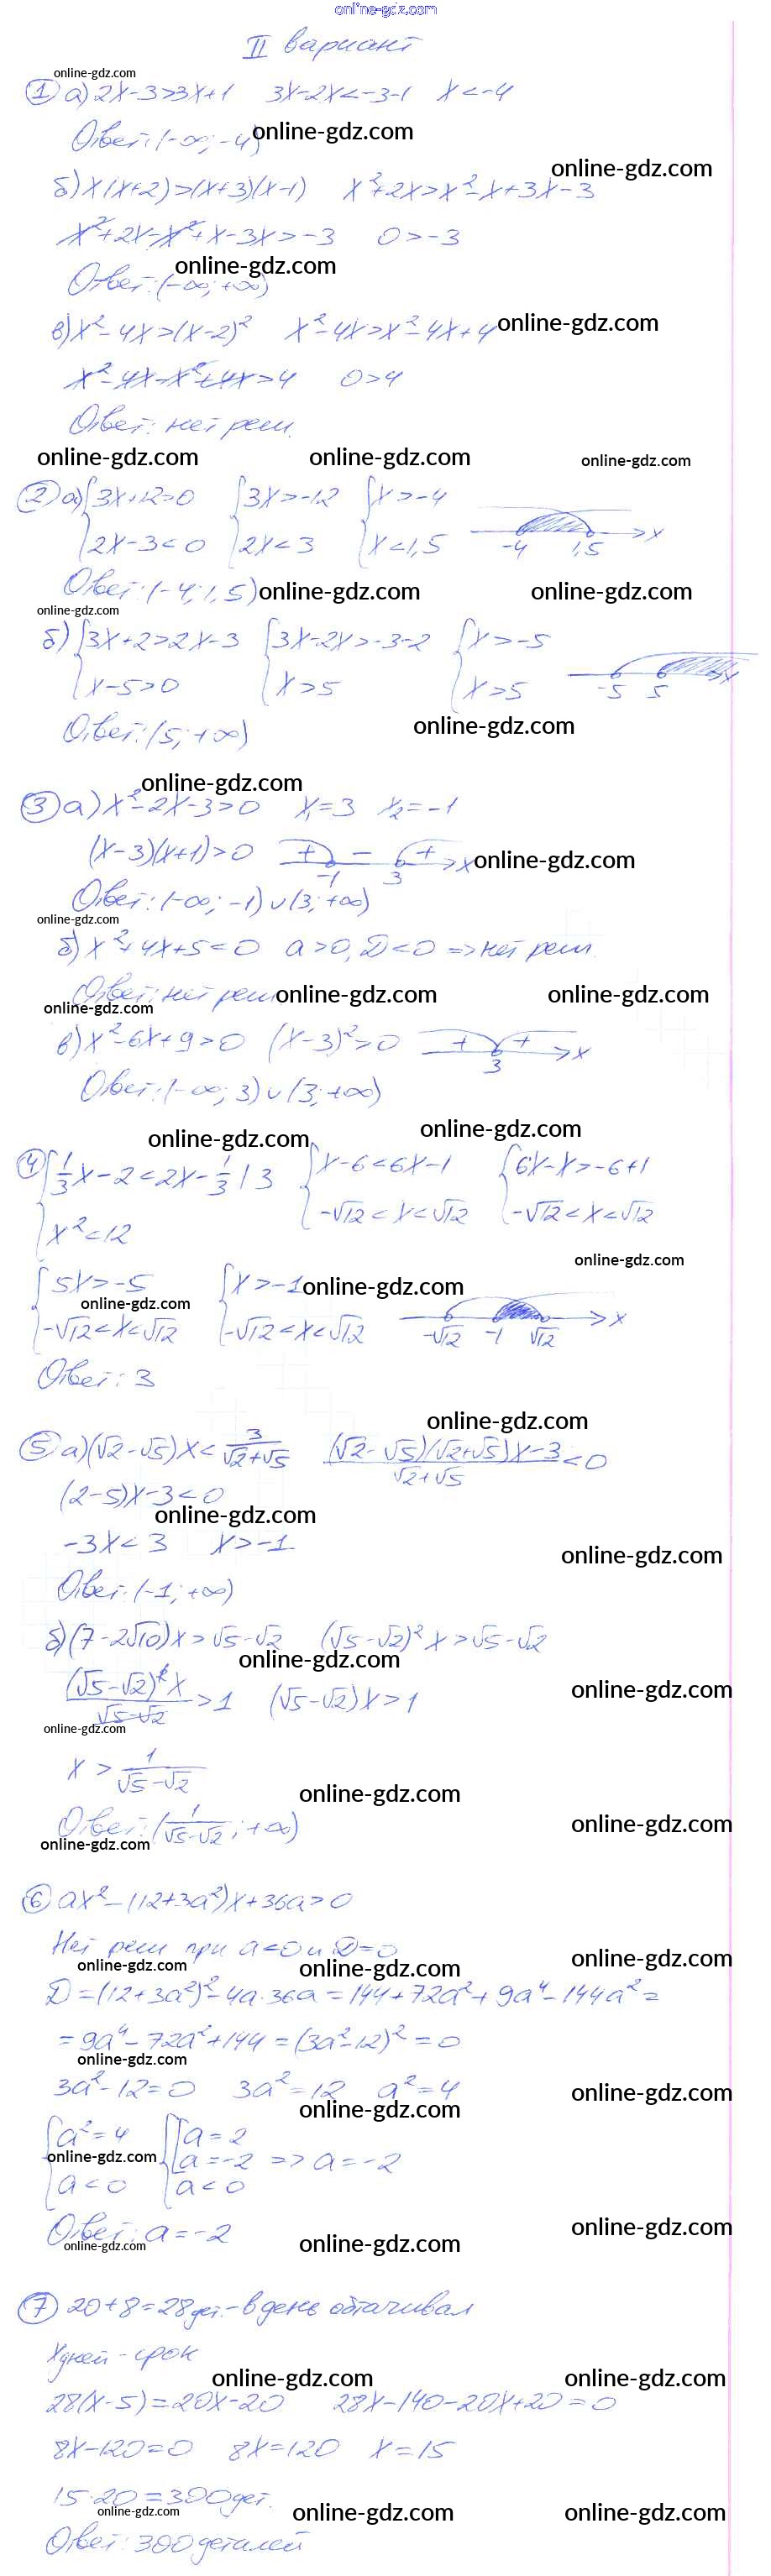 online-gdz.com
II вариант
online-gdz.com
① а) 2x-3>3x+1 3x-2x<-3-1 x<-4
Ответ: (-∞; -4)
online-gdz.com
online-gdz.com
б) x(x+2)>(x+3)(x-1) x²+2x>x²-x+3x-3
x²+2x-x²+x-3x>-3 0>-3
online-gdz.com
Ответ: (-∞; +∞)
в) x²-4x>(x-2)² x²-4x>x²-4x+4
online-gdz.com
x²-4x-x²+4x>4 0>4
Ответ: нет реш.
online-gdz.com online-gdz.com online-gdz.com
② а) {3x+12>0 {3x>-12 {x>-4
{2x-3<0 {2x<3 {x<1,5 -4 1,5 x
Ответ: (-4; 1,5)
online-gdz.com online-gdz.com
online-gdz.com
б) {3x+2>2x-3 {3x-2x>-3-2 {x>-5
{x-5>0 {x>5 {x>5 -5 5 x
Ответ: (5; +∞)
online-gdz.com
online-gdz.com
③ а) x²-2x-3>0 x₁=3 x₂=-1
(x-3)(x+1)>0 + -1 - 3 + x
online-gdz.com
Ответ: (-∞; -1)∪(3; +∞)
online-gdz.com
б) x²+4x+5<0 a>0, D<0 => нет реш.
Ответ: нет реш
online-gdz.com online-gdz.com
online-gdz.com
в) x²-6x+9>0 (x-3)²>0 + 3 + x
Ответ: (-∞; 3)∪(3; +∞)
online-gdz.com online-gdz.com
④ {1/3x-2<2x-1/3 |3 {x-6<6x-1 {6x-x>-6+1
{x²<12 {-√12<x<√12 {-√12<x<√12
online-gdz.com
{5x>-5 {x>-1
online-gdz.com
online-gdz.com
{-√12<x<√12 {-√12<x<√12 -√12 -1 √12 x
Ответ: 3
online-gdz.com
⑤ а) (√2-√5)x<3/(√2+√5) ((√2-√5)(√2+√5)x-3)/(√2+√5)<0
(2-5)x-3<0
online-gdz.com
-3x<3 x>-1
online-gdz.com
Ответ: (-1; +∞)
б) (7-2√10)x>√5-√2 (√5-√2)²x>√5-√2
online-gdz.com
(√5-√2)²x/(√5-√2)>1 (√5-√2)x>1
online-gdz.com
online-gdz.com
x>1/(√5-√2)
online-gdz.com
Ответ: (1/(√5-√2); +∞)
online-gdz.com
online-gdz.com
⑥ ax²-(12+3a²)x+36a>0
Нет реш при a<0 и D=0
online-gdz.com online-gdz.com online-gdz.com
D=(12+3a²)²-4a·36a=144+72a²+9a⁴-144a²=
=9a⁴-72a²+144=(3a²-12)²=0
online-gdz.com
3a²-12=0 3a²=12 a²=4
online-gdz.com
online-gdz.com
{a²=4 {[a=2
online-gdz.com
[a=-2 => a=-2
{a<0 {a<0
Ответ: a=-2
online-gdz.com
online-gdz.com online-gdz.com
⑦ 20+8=28дет.-в день обтачивал
x дней - срок
online-gdz.com online-gdz.com
28(x-5)=20x-20 28x-140-20x+20=0
8x-120=0 8x=120 x=15
15·20=300дет.
online-gdz.com online-gdz.com online-gdz.com
Ответ: 300 деталей